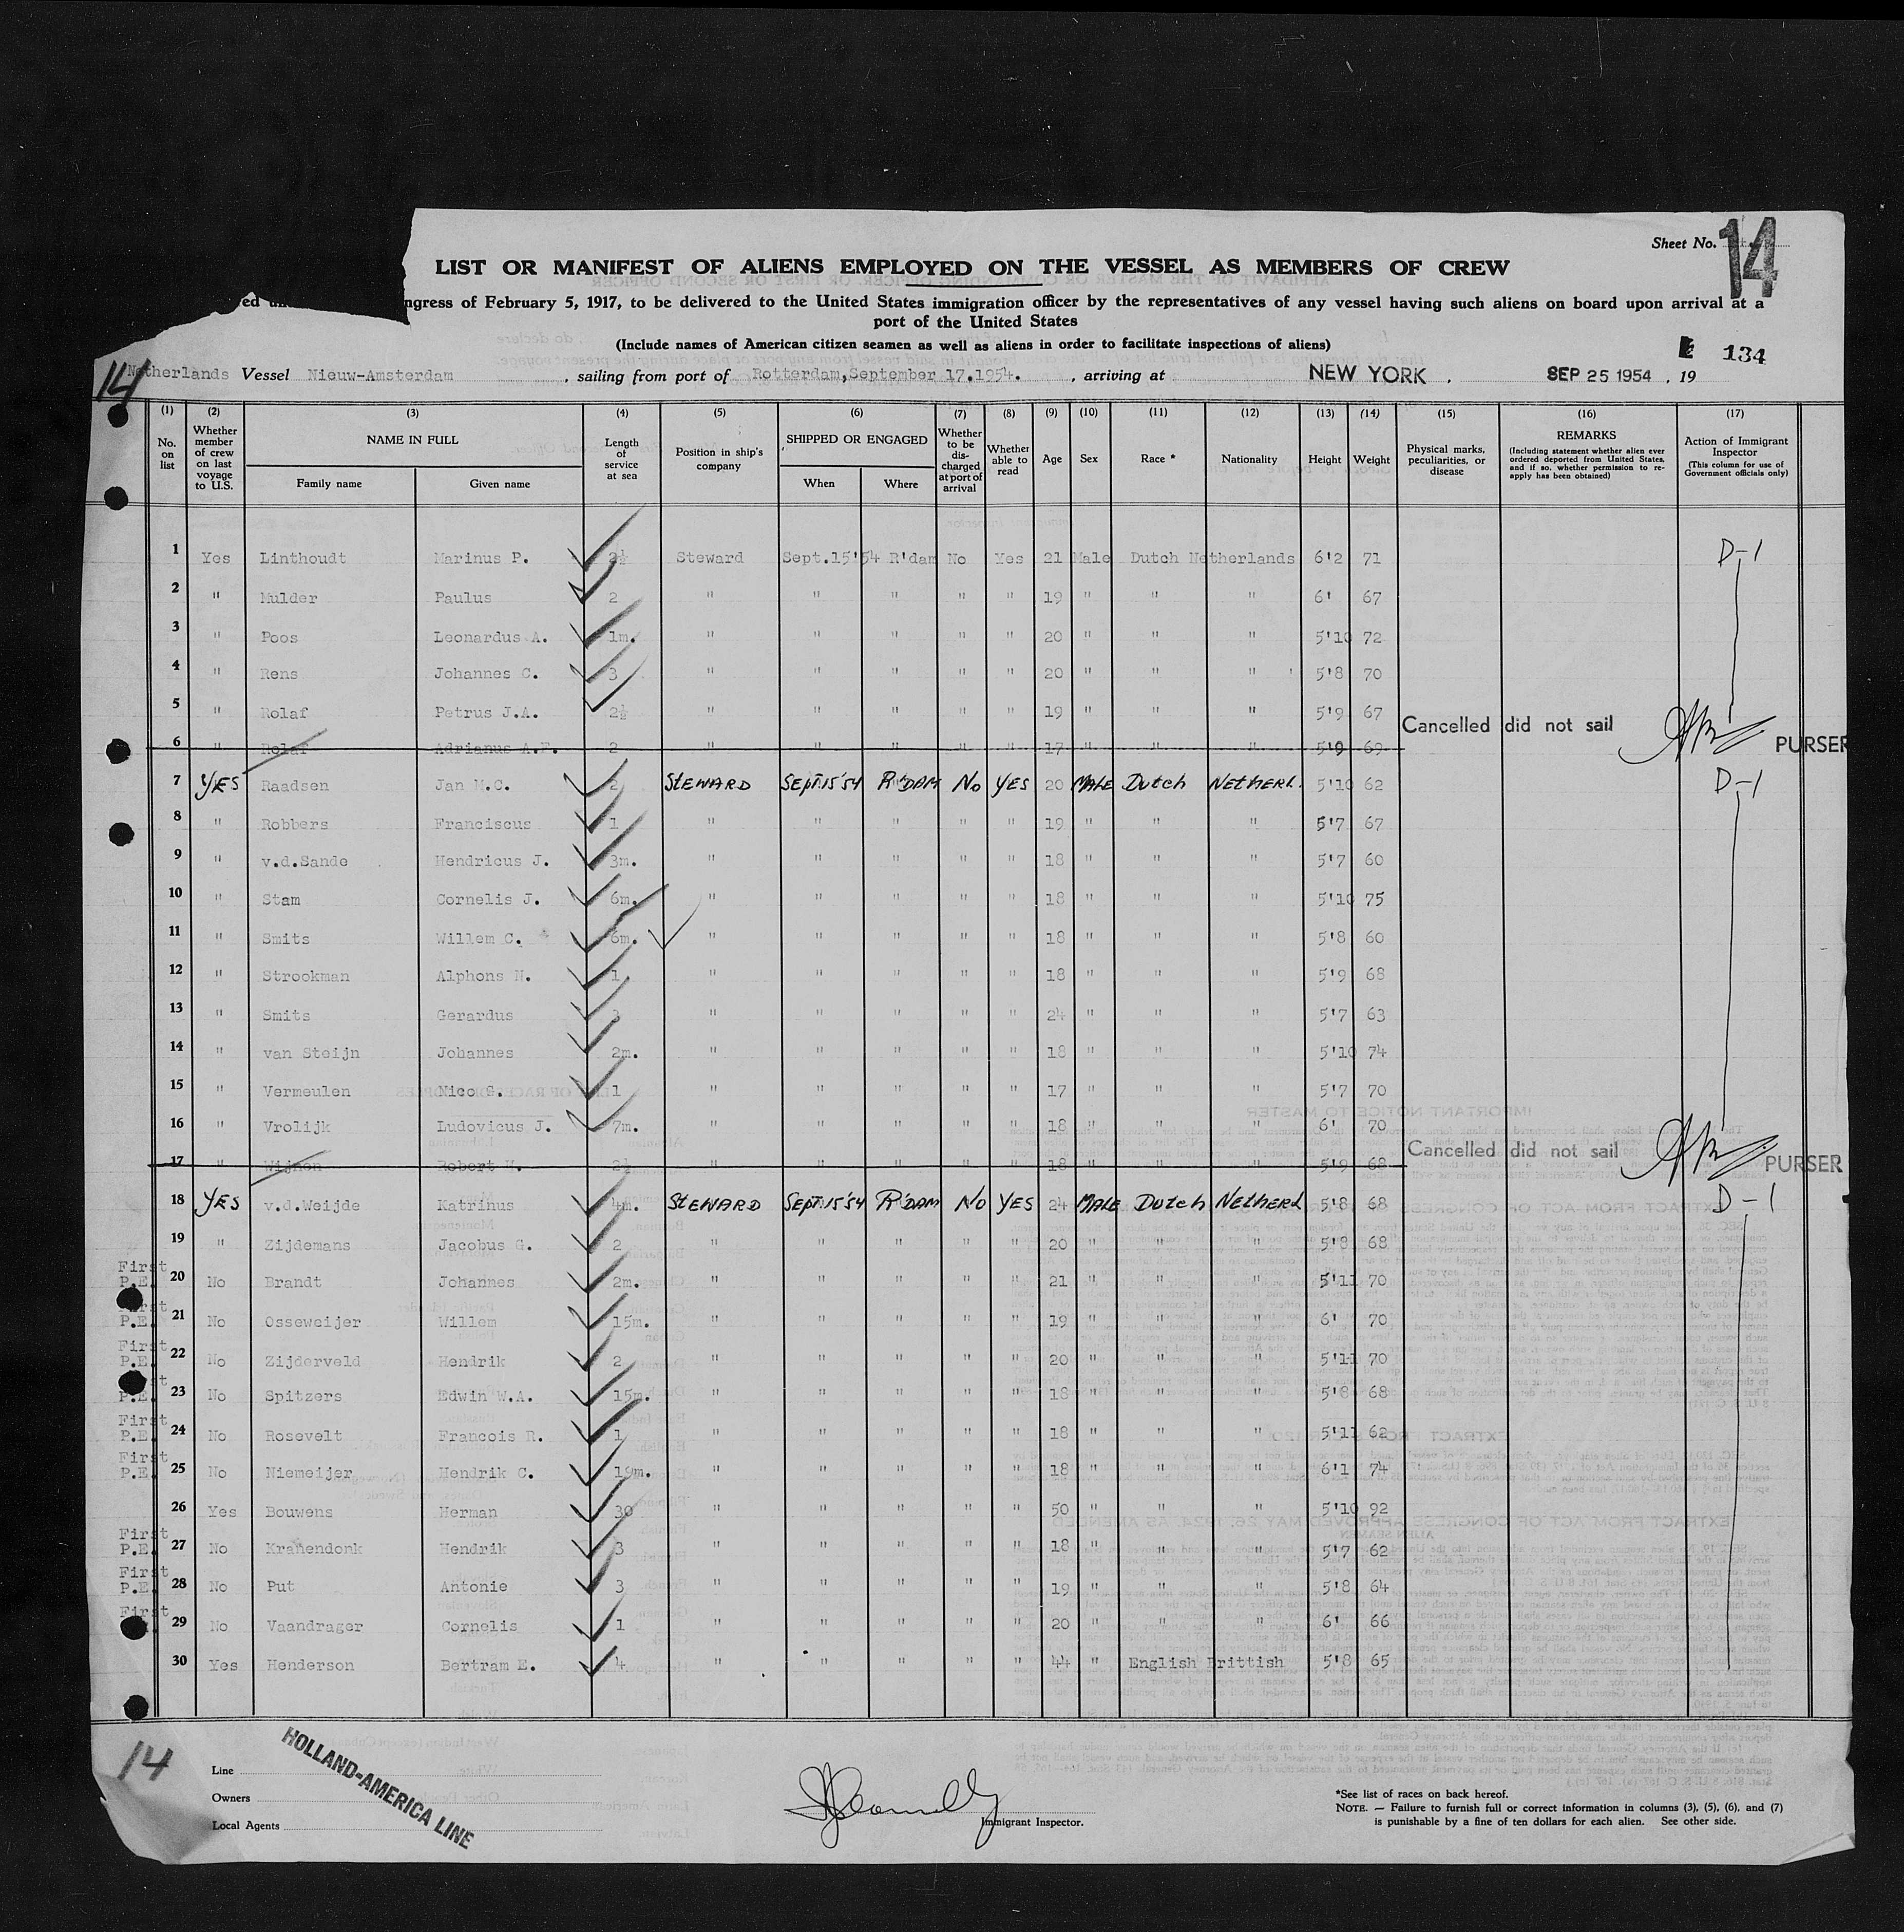 Sheet No. 14
LIST OR MANIFEST OF ALIENS EMPLOYED ON THE VESSEL AS MEMBERS OF CREW
ngress of February 5, 1917, to be delivered to the United States immigration officer by the representatives of any vessel having such aliens on board upon arrival at a
port of the United States
(Include names of American citizen seamen as well as aliens in order to facilitate inspections of aliens)
134
14
Netherlands Vessel Nieuw-Amsterdam , sailing from port of Rotterdam, September 17.1954. , arriving at NEW YORK . SEP 25 1954 , 19
(1) No. on list (2) Whether member of crew on last voyage to U.S. (3) NAME IN FULL Family name Given name (4) Length of service at sea (5) Position in ship's company (6) SHIPPED OR ENGAGED When Where (7) Whether to be discharged at port of arrival (8) Whether able to read (9) Age (10) Sex (11) Race * (12) Nationality (13) Height (14) Weight (15) Physical marks, peculiarities, or disease (16) REMARKS (Including statement whether alien ever ordered deported from United States, and if so, whether permission to re-apply has been obtained) (17) Action of Immigrant Inspector (This column for use of Government officials only)
1 Yes Linthoudt Marinus P. 2½ Steward Sept.15'54 R'dam No Yes 21 Male Dutch Netherlands 6'2 71 D-1
2 " Mulder Paulus 2 " " " " " 19 " " " 6' 67
3 " Poos Leonardus A. 1m. " " " " " 20 " " " 5'10 72
4 " Rens Johannes C. 3 " " " " " 20 " " " 5'8 70
5 " Rolaf Petrus J.A. 2½ " " " " " 19 " " " 5'9 67
6 " Rolaf Adrianus A.F. 2 " " " " " 17 " " " 5'9 69 Cancelled did not sail PURSER
7 YES Raadsen Jan M.C. 2 STEWARD SEPT.15'54 R'DAM No YES 20 MALE Dutch NETHERL. 5'10 62 D-1
8 " Robbers Franciscus 1 " " " " " 19 " " " 5'7 67
9 " v.d.Sande Hendricus J. 3m. " " " " " 18 " " " 5'7 60
10 " Stam Cornelis J. 6m. " " " " " 18 " " " 5'10 75
11 " Smits Willem C. 6m. " " " " " 18 " " " 5'8 60
12 " Strookman Alphons N. 1. " " " " " 18 " " " 5'9 68
13 " Smits Gerardus 3 " " " " " 24 " " " 5'7 63
14 " van Steijn Johannes 2m. " " " " " 18 " " " 5'10 74
15 " Vermeulen Nico G. 1 " " " " " 17 " " " 5'7 70
16 " Vrolijk Ludovicus J. 7m. " " " " " 18 " " " 6' 70
17 " Wijnen Robert 2½ " " " " " 18 " " " 5'9 68 Cancelled did not sail PURSER
18 YES v.d.Weijde Katrinus 4m. STEWARD SEPT.15'54 R'DAM NO YES 24 MALE Dutch NETHERL 5'8 68 D-1
19 " Zijdemans Jacobus G. 2 " " " " " 20 " " " 5'8 68
First P.E. 20 No Brandt Johannes 2m. " " " " " 21 " " " 5'11 70
First P.E. 21 No Osseweijer Willem 15m. " " " " " 19 " " " 6' 70
First P.E. 22 No Zijderveld Hendrik 2 " " " " " 20 " " " 5'11 70
First P.E. 23 No Spitzers Edwin W.A. 15m. " " " " " 18 " " " 5'8 68
First P.E. 24 No Rosevelt Francois R. 1 " " " " " 18 " " " 5'11 62
First P.E. 25 No Niemeijer Hendrik C. 19m. " " " " " 18 " " " 6'1 74
26 Yes Bouwens Herman 30 " " " " " 50 " " " 5'10 92
First P.E. 27 No Kranendonk Hendrik 3 " " " " " 18 " " " 5'7 62
First P.E. 28 No Put Antonie 3 " " " " " 19 " " " 5'8 64
First 29 No Vaandrager Cornelis 1 " " " " " 20 " " " 6' 66
30 Yes Henderson Bertram E. 4 " " " " " 44 " English Brittish 5'8 65
14
HOLLAND-AMERICA LINE
Line
Owners
Local Agents
Immigrant Inspector.
*See list of races on back hereof.
NOTE. — Failure to furnish full or correct information in columns (3), (5), (6), and (7)
is punishable by a fine of ten dollars for each alien. See other side.